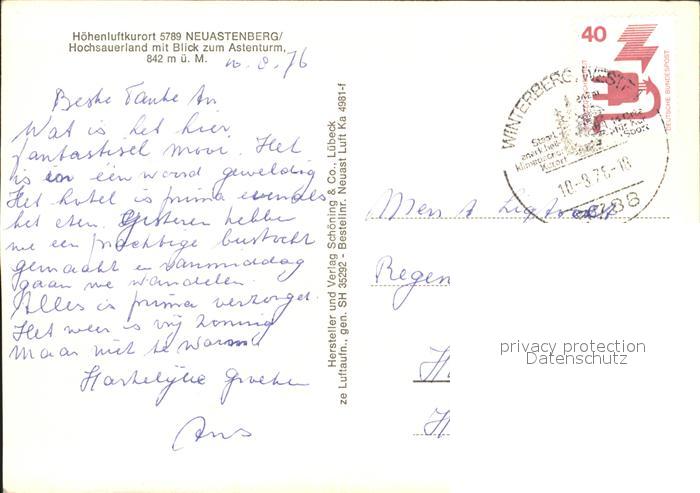 Höhenluftkurort 5789 NEUASTENBERG/
Hochsauerland mit Blick zum Astenturm,
842 m ü. M.
10.8.76
Beste Tante An
Wat is het hier
fantastisch mooi. Het
is in één woord geweldig
Het hotel is prima evenals
het eten. Gisteren hebben
we een prachtige bustocht
gemaakt en vanmiddag
gaan we wandelen.
Alles is prima verzorgd.
Het weer is vrij zonnig
maar niet te warm
Hartelijke Groeten
Ans
Hersteller und Verlag Schöning & Co., Lübeck
ze Luftaufn., gen. SH 35292 - Bestellnr. Neuast Luft Ka 4981-f
40
DEUTSCHE BUNDESPOST
WINTERBERG, WESTF
Kurort
5788
Regen
H
H
privacy protection
Datenschutz